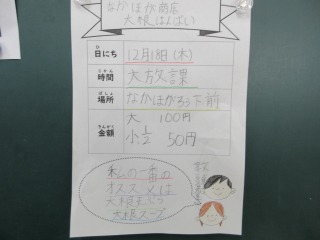 なかほか商店
大根はんばい
日にち 12月18日(木)
時間 大放課
場所 なかほかろう下前
金額 大 100円
小½ 50円
私の一番の
オススメは
大根天ぷら
大根スープ